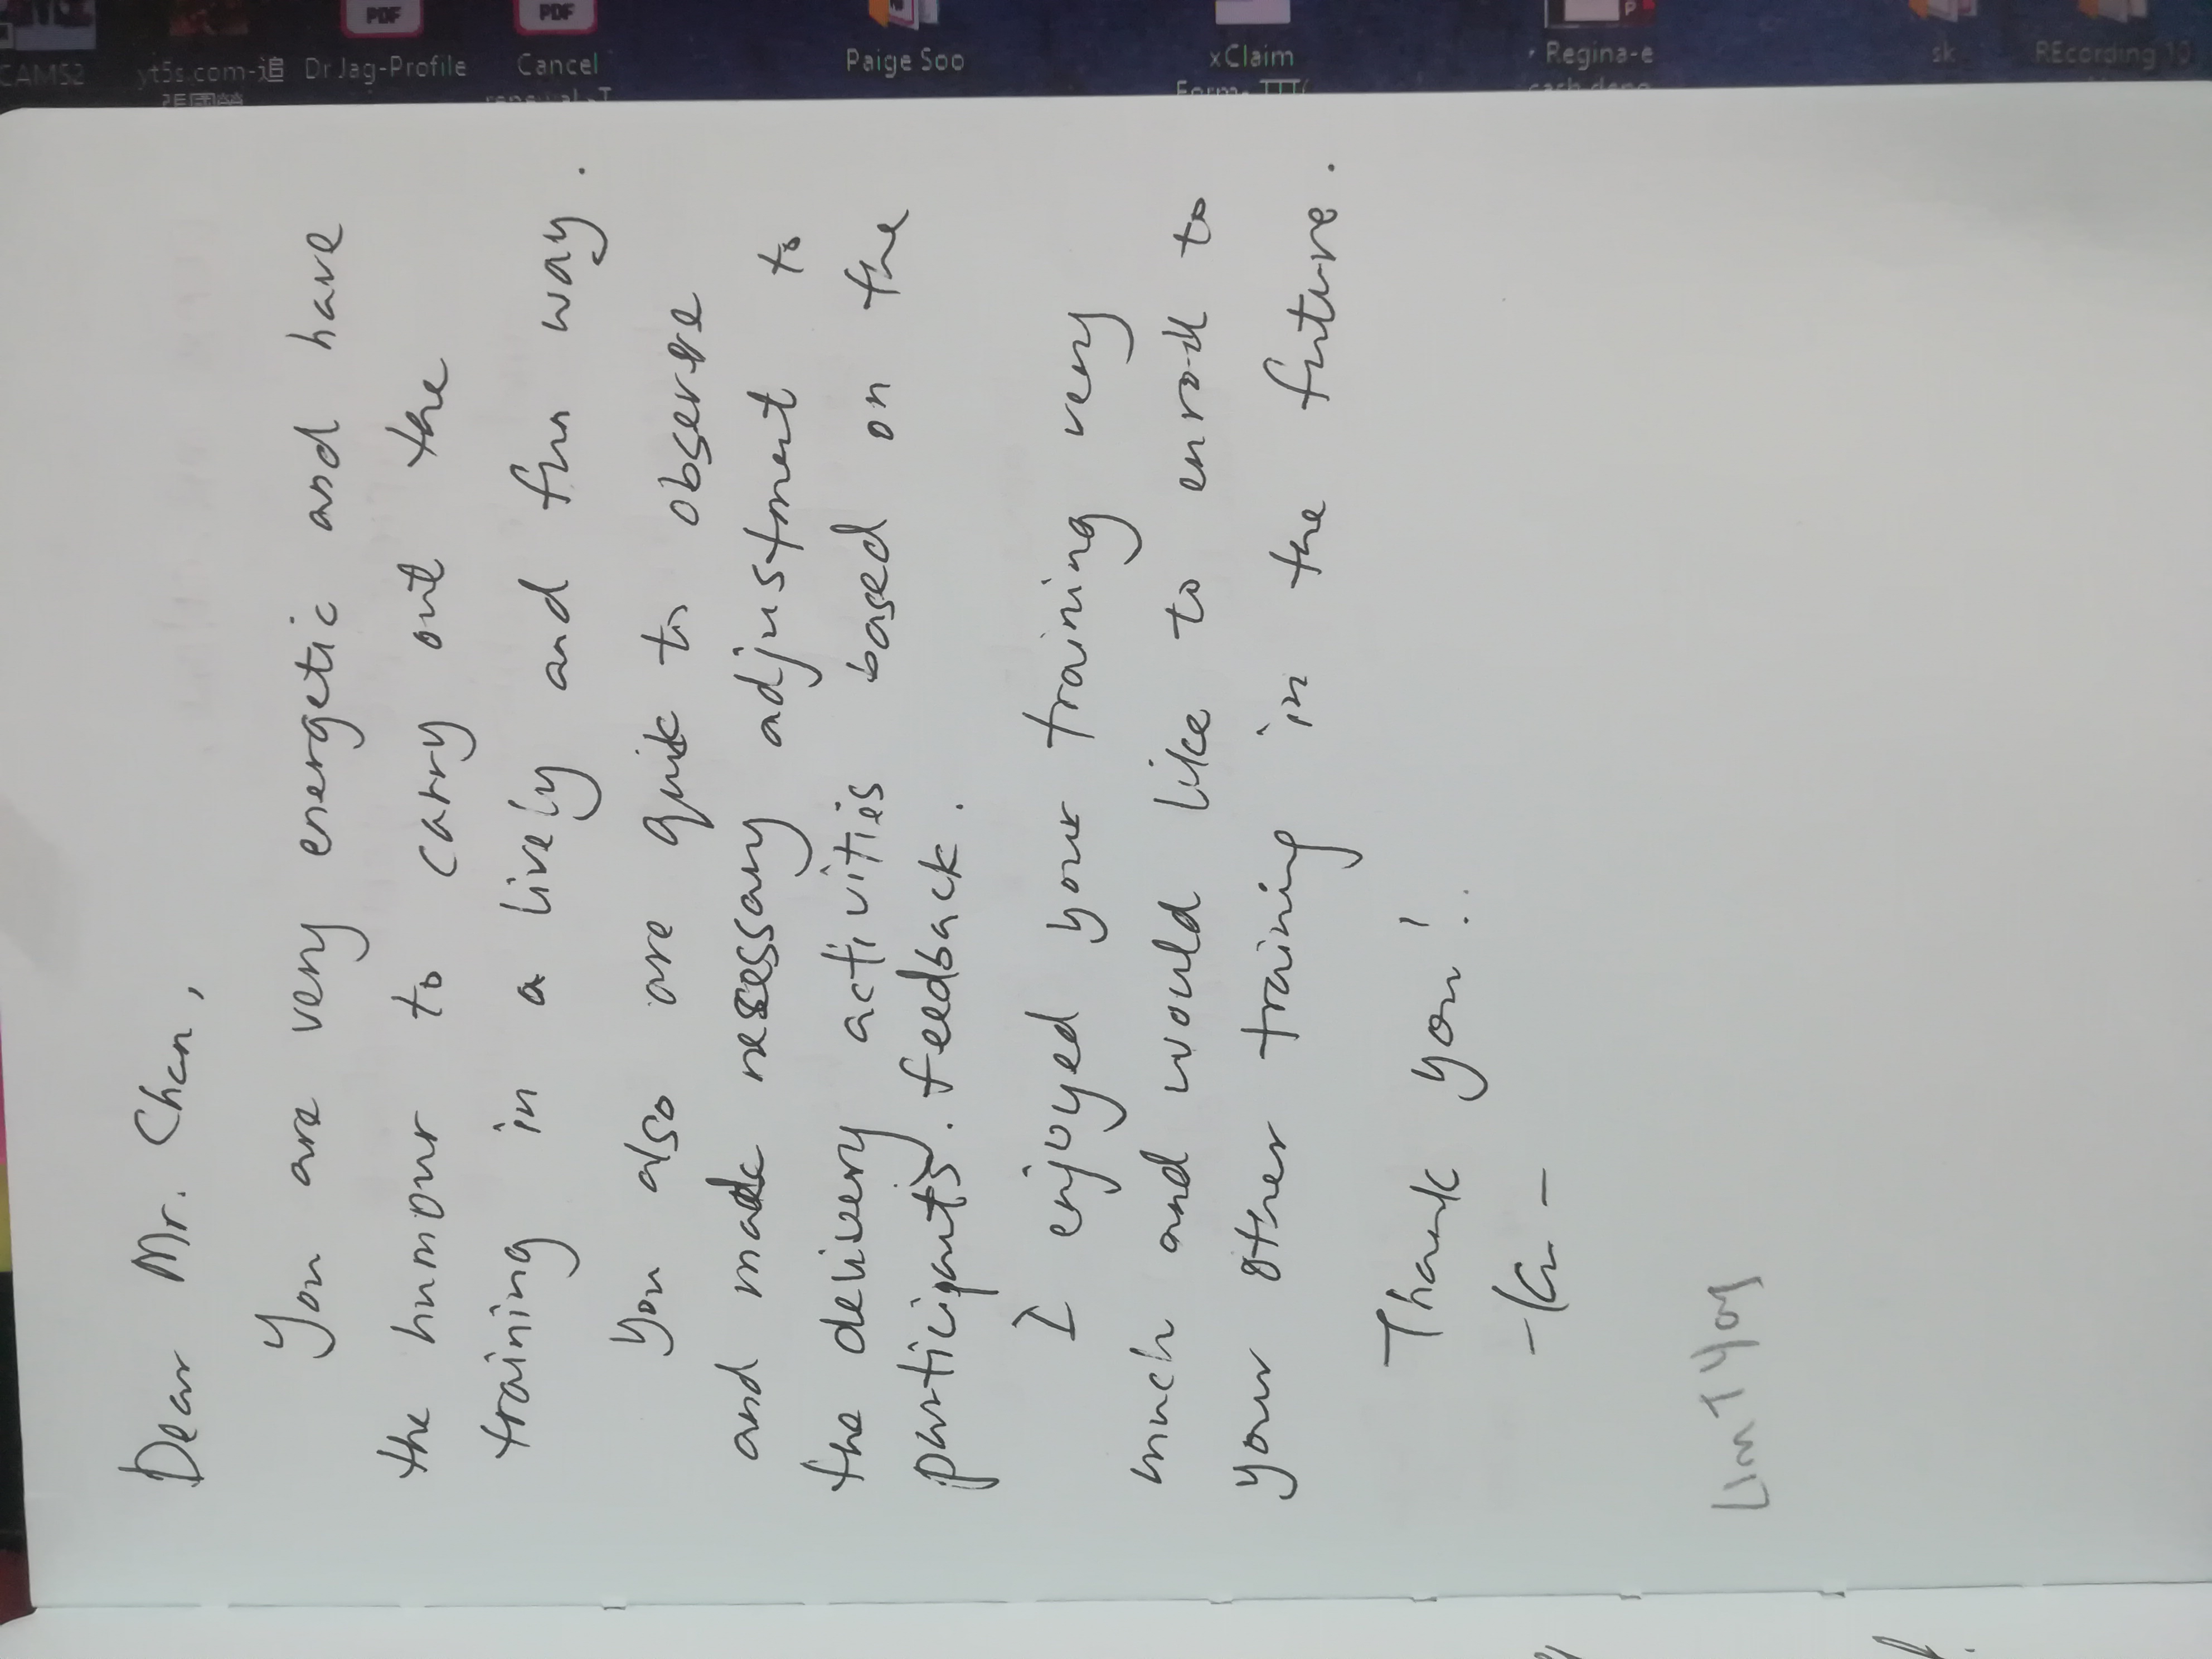 CAMS2
yt5s.com-追
Dr Jag-Profile
PDF
Cancel
PDF
Paige Soo
xClaim
Regina-e
sk
REcording 10
Dear Mr. Chan,
You are very energetic and have
the humour to carry out the
training in a lively and fun way.
You also are quick to observe
and make necessary adjustment to
the delivery activities based on the
participants' feedback.
I enjoyed your training very
much and would like to enroll to
your other training in the future.
Thank you!